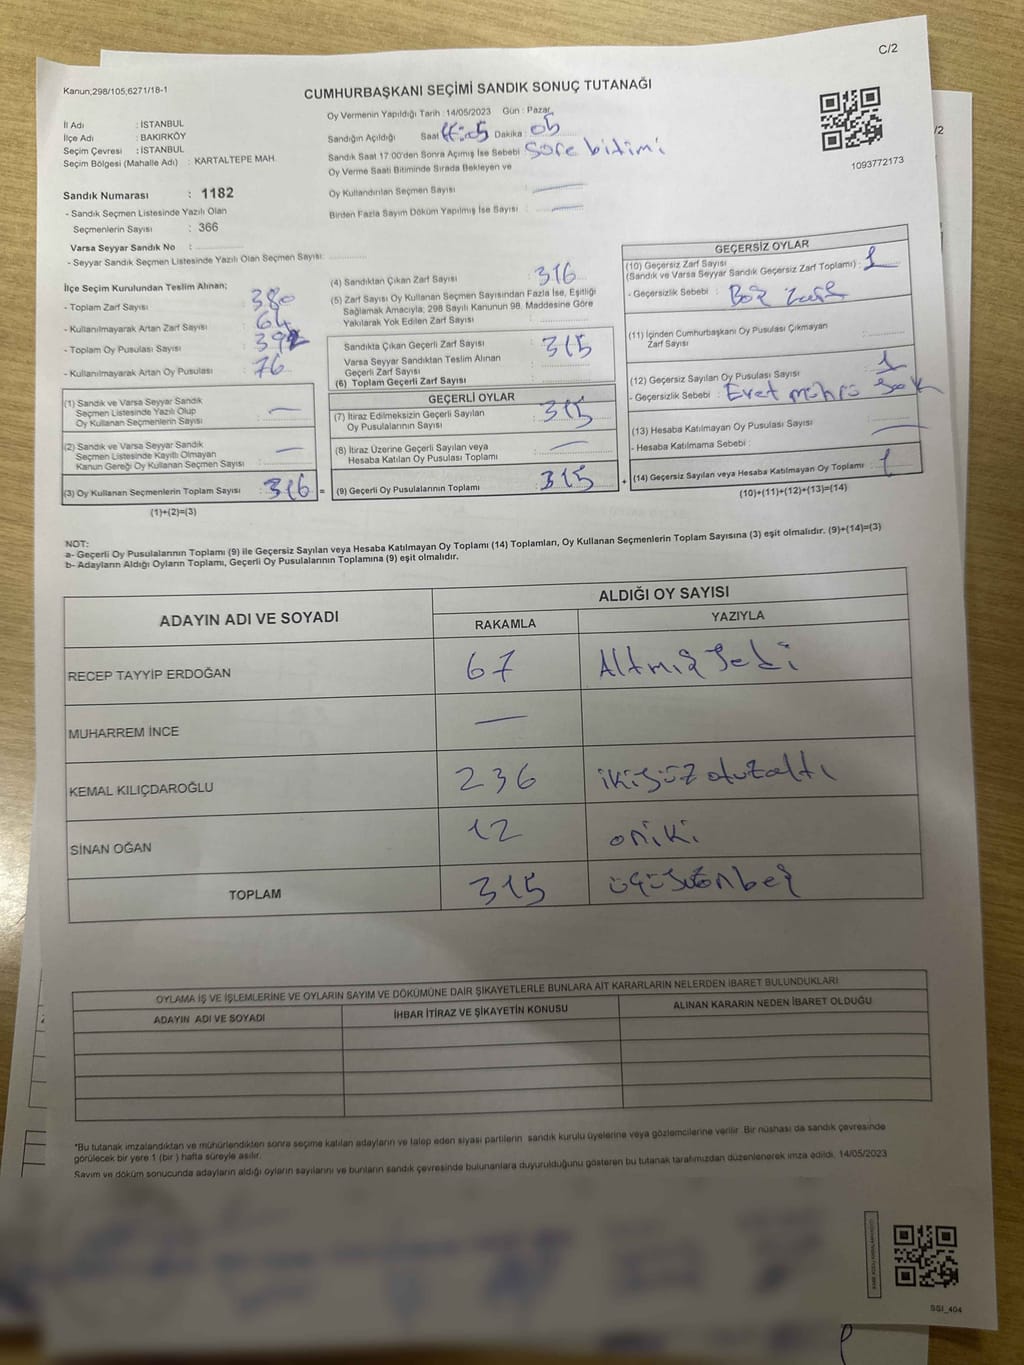 C/2
Kanun;298/105;6271/18-1
CUMHURBAŞKANI SEÇİMİ SANDIK SONUÇ TUTANAĞI
İl Adı : İSTANBUL
İlçe Adı : BAKIRKÖY
Seçim Çevresi : İSTANBUL
Seçim Bölgesi (Mahalle Adı) : KARTALTEPE MAH.
Sandık Numarası : 1182
- Sandık Seçmen Listesinde Yazılı Olan
Seçmenlerin Sayısı : 366
Varsa Seyyar Sandık No :
- Seyyar Sandık Seçmen Listesinde Yazılı Olan Seçmen Sayısı:
Oy Vermenin Yapıldığı Tarih : 14/05/2023 Gün : Pazar
Sandığın Açıldığı Saat Dakika : 05
Sandık Saat 17:00'den Sonra Açımış İse Sebebi Süre bitimi
Oy Verme Saati Bitiminde Sırada Bekleyen ve
Oy Kullandırılan Seçmen Sayısı
Birden Fazla Sayım Döküm Yapılmış İse Sayısı
1093772173
İlçe Seçim Kurulundan Teslim Alınan;
- Toplam Zarf Sayısı : 380
- Kullanılmayarak Artan Zarf Sayısı : 64
- Toplam Oy Pusulası Sayısı : 392
- Kullanılmayarak Artan Oy Pusulası : 76
(1) Sandık ve Varsa Seyyar Sandık
Seçmen Listesinde Yazılı Olup
Oy Kullanan Seçmenlerin Sayısı : —
(2) Sandık ve Varsa Seyyar Sandık
Seçmen Listesinde Kayıtlı Olmayan
Kanun Gereği Oy Kullanan Seçmen Sayısı : —
(3) Oy Kullanan Seçmenlerin Toplam Sayısı : 316 =
(1)+(2)=(3)
(4) Sandıktan Çıkan Zarf Sayısı : 316
(5) Zarf Sayısı Oy Kullanan Seçmen Sayısından Fazla İse, Eşitliği
Sağlamak Amacıyla; 298 Sayılı Kanunun 98. Maddesine Göre
Yakılarak Yok Edilen Zarf Sayısı :
Sandıkta Çıkan Geçerli Zarf Sayısı : 315
Varsa Seyyar Sandıktan Teslim Alınan
Geçerli Zarf Sayısı :
(6) Toplam Geçerli Zarf Sayısı :
GEÇERLİ OYLAR
(7) İtiraz Edilmeksizin Geçerli Sayılan
Oy Pusulalarının Sayısı : 315
(8) İtiraz Üzerine Geçerli Sayılan veya
Hesaba Katılan Oy Pusulası Toplamı : —
(9) Geçerli Oy Pusulalarının Toplamı : 315 +
GEÇERSİZ OYLAR
(10) Geçersiz Zarf Sayısı
(Sandık ve Varsa Seyyar Sandık Geçersiz Zarf Toplamı) : 1
- Geçersizlik Sebebi : Boş Zarf
(11) İçinden Cumhurbaşkanı Oy Pusulası Çıkmayan
Zarf Sayısı :
(12) Geçersiz Sayılan Oy Pusulası Sayısı : 1
- Geçersizlik Sebebi : Evet mührü yok
(13) Hesaba Katılmayan Oy Pusulası Sayısı : —
- Hesaba Katılmama Sebebi :
(14) Geçersiz Sayılan veya Hesaba Katılmayan Oy Toplamı : 1
(10)+(11)+(12)+(13)=(14)
NOT:
a- Geçerli Oy Pusulalarının Toplamı (9) ile Geçersiz Sayılan veya Hesaba Katılmayan Oy Toplamı (14) Toplamları, Oy Kullanan Seçmenlerin Toplam Sayısına (3) eşit olmalıdır. (9)+(14)=(3)
b- Adayların Aldığı Oyların Toplamı, Geçerli Oy Pusulalarının Toplamına (9) eşit olmalıdır.
ADAYIN ADI VE SOYADI
ALDIĞI OY SAYISI
RAKAMLA YAZIYLA
RECEP TAYYİP ERDOĞAN 67 Altmış Yedi
MUHARREM İNCE —
KEMAL KILIÇDAROĞLU 236 ikiyüz otuzaltı
SİNAN OĞAN 12 oniki
TOPLAM 315 üçyüzonbeş
OYLAMA İŞ VE İŞLEMLERİNE VE OYLARIN SAYIM VE DÖKÜMÜNE DAİR ŞİKAYETLERLE BUNLARA AİT KARARLARIN NELERDEN İBARET BULUNDUKLARI
ADAYIN ADI VE SOYADI İHBAR İTİRAZ VE ŞİKAYETİN KONUSU ALINAN KARARIN NEDEN İBARET OLDUĞU
*Bu tutanak imzalandıktan ve mühürlendikten sonra seçime katılan adayların ve talep eden siyasi partilerin sandık kurulu üyelerine veya gözlemcilerine verilir. Bir nüshası da sandık çevresinde
görülecek bir yere 1 (bir ) hafta süreyle asılır.
Sayım ve döküm sonucunda adayların aldığı oyların sayılarını ve bunların sandık çevresinde bulunanlara duyurulduğunu gösteren bu tutanak tarafımızdan düzenlenerek imza edildi. 14/05/2023
SSI_404